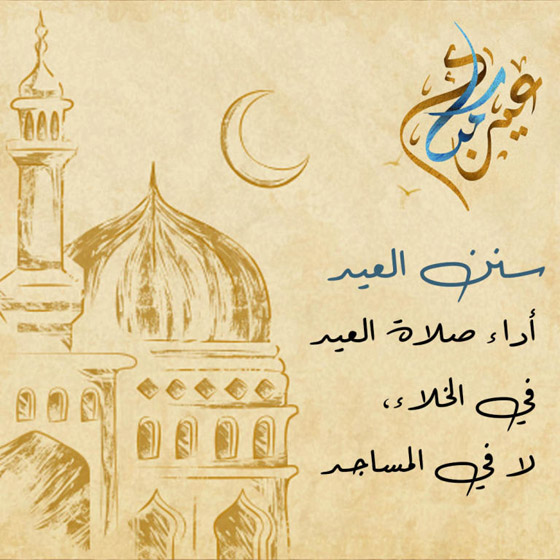 عيد مبارك
سنن العيد
أداء صلاة العيد
في الخلاء،
لا في المساجد